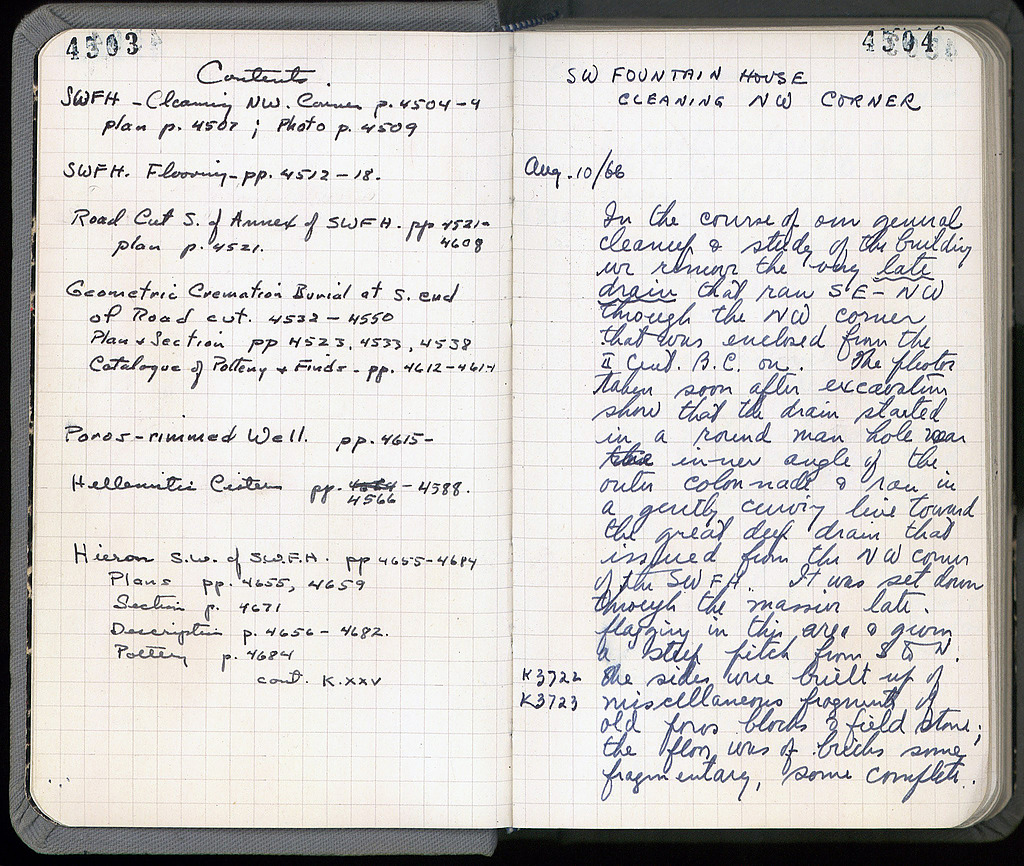 4503
Contents.
SWFH - Cleaning NW. Corner p. 4504-9
plan p. 4507; Photo p. 4509
SWFH. Flooring - pp. 4512-18.
Road Cut S. of Annex of SWFH. pp 4521-
4608
plan p. 4521.
Geometric Cremation Burial at S. end
of Road cut. 4532-4550
Plan + Section pp 4523, 4533, 4538
Catalogue of Pottery + Finds - pp. 4612-4614
Poros-rimmed Well. pp. 4615-
Hellenistic Cistern pp. 4566-4588.
Hieron S.W. of S.W.F.H. pp 4655-4684
Plans pp. 4655, 4659
Section p. 4671
Description p. 4656-4682.
Pottery p. 4684
cont. K.XXV
4504
SW FOUNTAIN HOUSE
CLEANING NW CORNER
Aug. 10/66
In the course of our general
cleanup & study of the building
we remove the very late
drain that ran SE-NW
through the NW corner
that was enclosed from the
II Cent. B.C. on. The photos
taken soon after excavation
show that the drain started
in a round man hole near
the inner angle of the
outer colonnade & ran in
a gently curving line toward
the great deep drain that
issued from the NW corner
of the SWFH. It was set down
through the massive late
flagging in this area & given
a steep pitch from S to N.
K3722 The sides were built up of
K3723 miscellaneous fragments of
old poros blocks & field stone;
the floor was of bricks some
fragmentary, some complete.